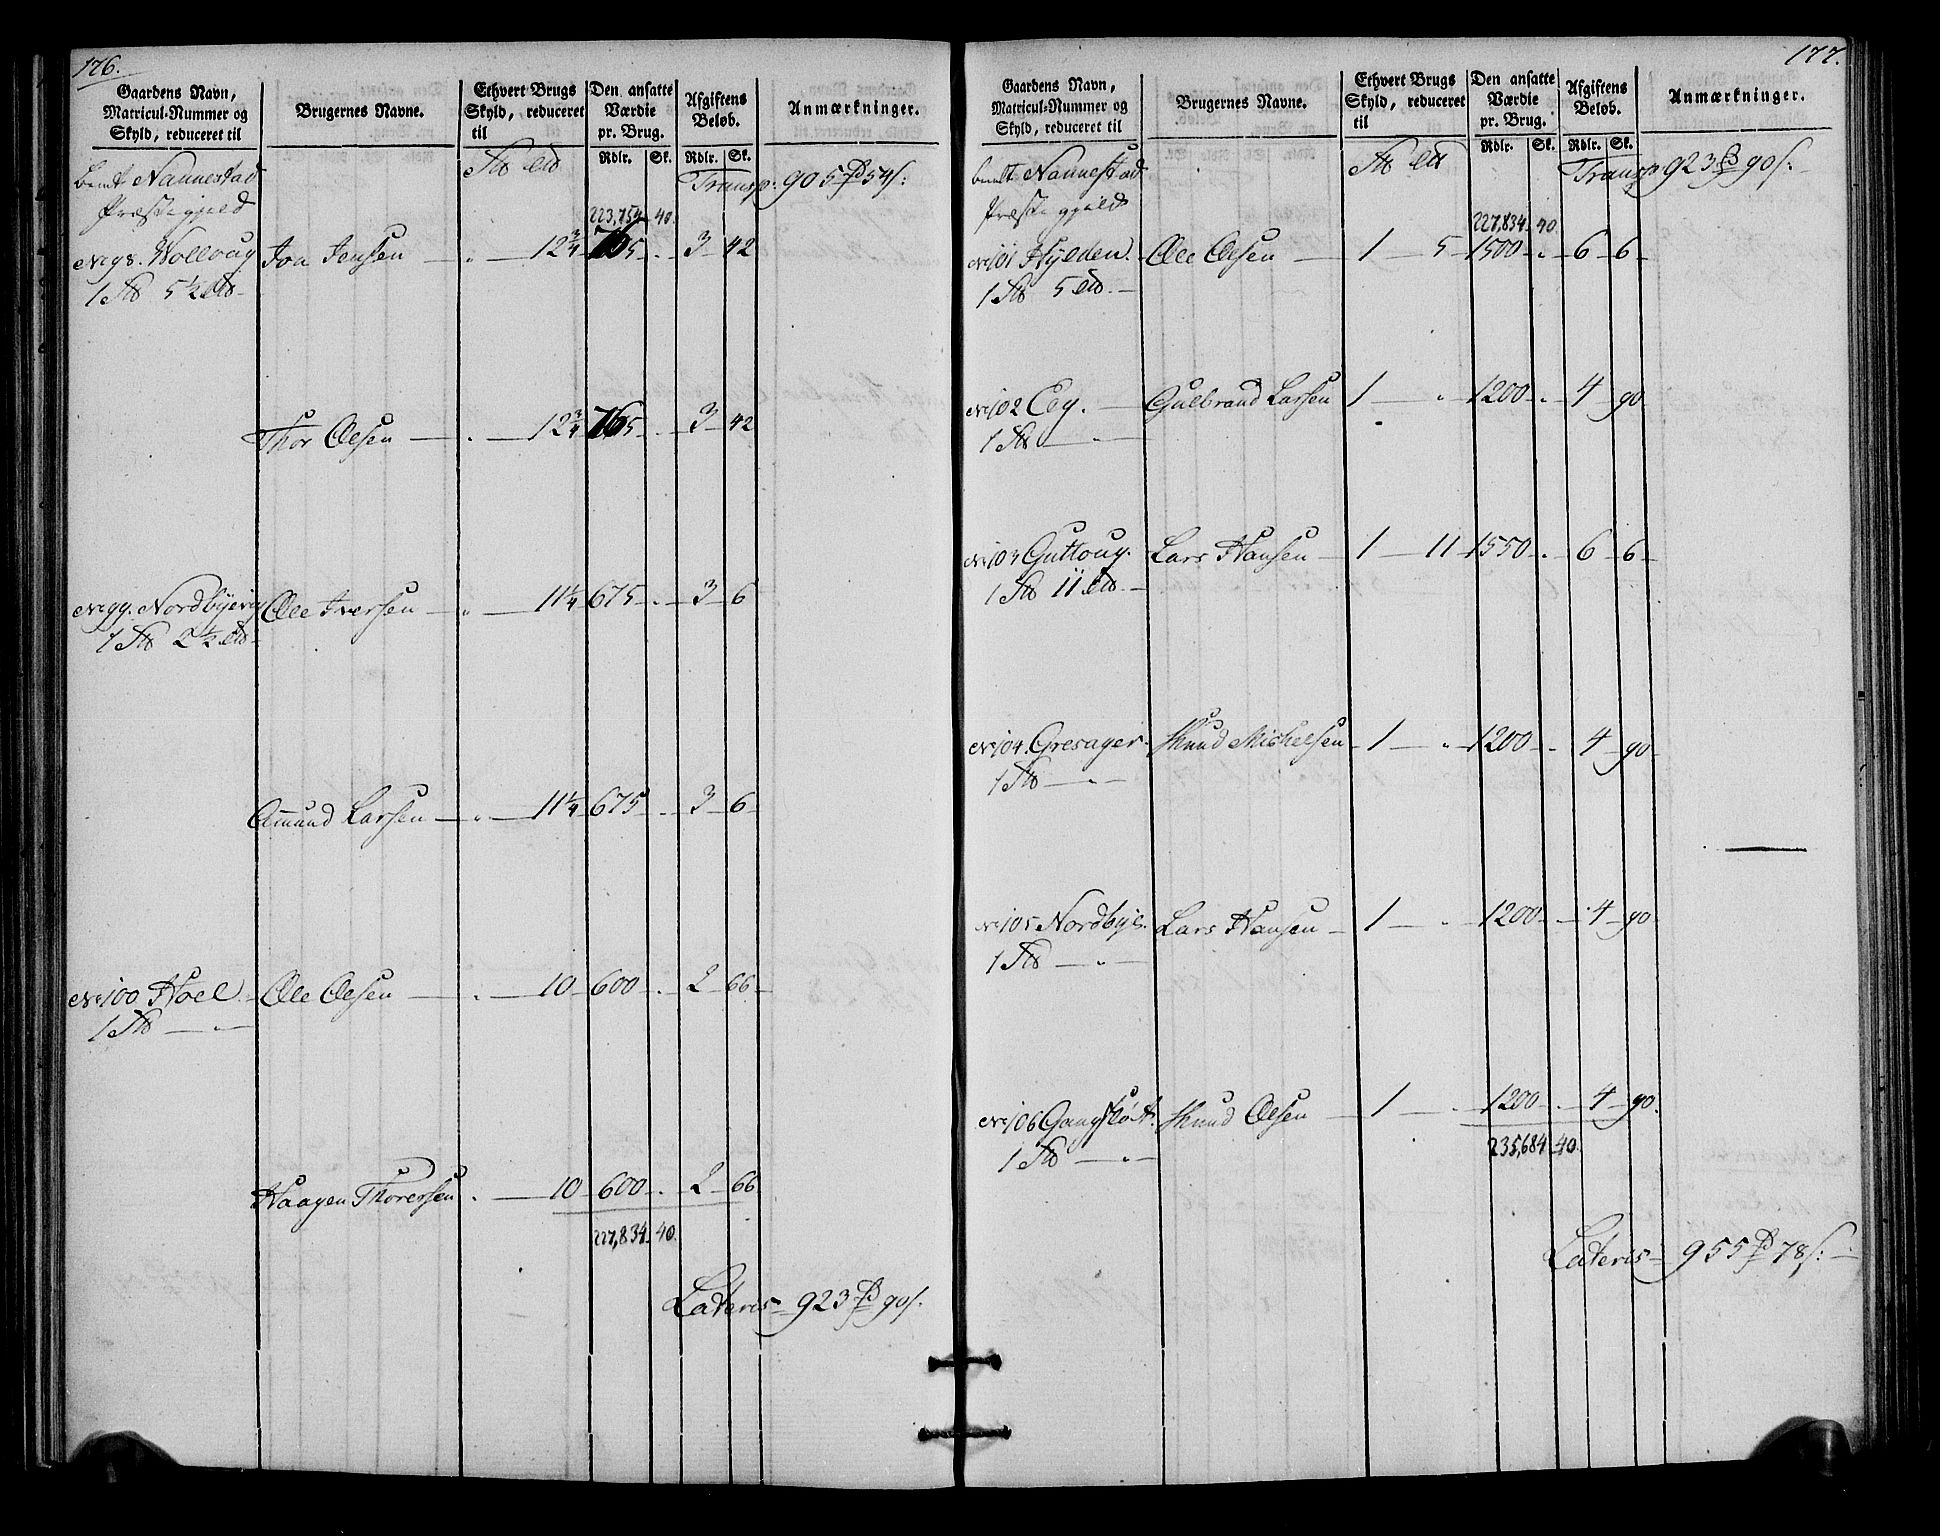 176.
Gaardens Navn, Matricul-Nummer og Skyld, reduceret til
Brugernes Navne.
Ethvert Brugs Skyld, reduceret til
Den ansatte Værdie pr. Brug.
Afgiftens Beløb.
Anmærkninger.
Rdlr. Sk. Rdlr. Sk.
Nannestad Transp: 905 54 s:
Præstegjeld
223,754 40.
No 98. Jon Jensen " 12 3/4 765 " 3 42
1 5 1/2
Thor Olsen " 12 3/4 765 " 3 42
No 99. Nordbye Ole Iversen " 11 1/4 675 " 3 6
1 2 1/2
Amund Larsen " 11 1/4 675 " 3 6
No 100 Hoel Ole Olsen " 10 600 " 2 66
1 "
Haagen Thorersen " 10 600 " 2 66
227,834 40.
Lateris 923 90 s.
177.
Gaardens Navn, Matricul-Nummer og Skyld, reduceret til
Brugernes Navne.
Ethvert Brugs Skyld, reduceret til
Den ansatte Værdie pr. Brug.
Afgiftens Beløb.
Anmærkninger.
Rdlr. Sk. Rdlr. Sk.
Nannestad Transp 923 90 s.
Præstegjeld
227,834 40
No 101 Hylden. Ole Olsen 1 5 1500 " 6 6
1 5
No 102 Gulbrand Larsen 1 " 1200 " 4 90
1 "
No 103 Guttoug. Lars Hansen 1 11 1550 " 6 6
1 11
No 104. Gresager. Knud Michelsen 1 " 1200 " 4 90
1 "
No 105 Nordbye. Lars Hansen 1 " 1200 " 4 90
1 "
No 106 Knud Olsen 1 " 1200 " 4 90.
1 "
235,684 40
Lateris 955 78 s: